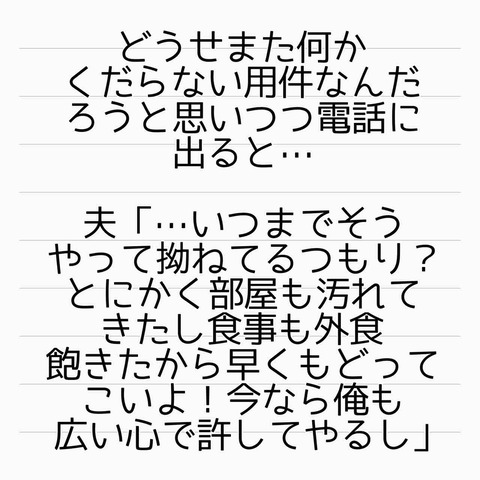 どうせまた何か
くだらない用件なんだ
ろうと思いつつ電話に
出ると…
夫「…いつまでそう
やって拗ねてるつもり？
とにかく部屋も汚れて
きたし食事も外食
飽きたから早くもどって
こいよ！今なら俺も
広い心で許してやるし」